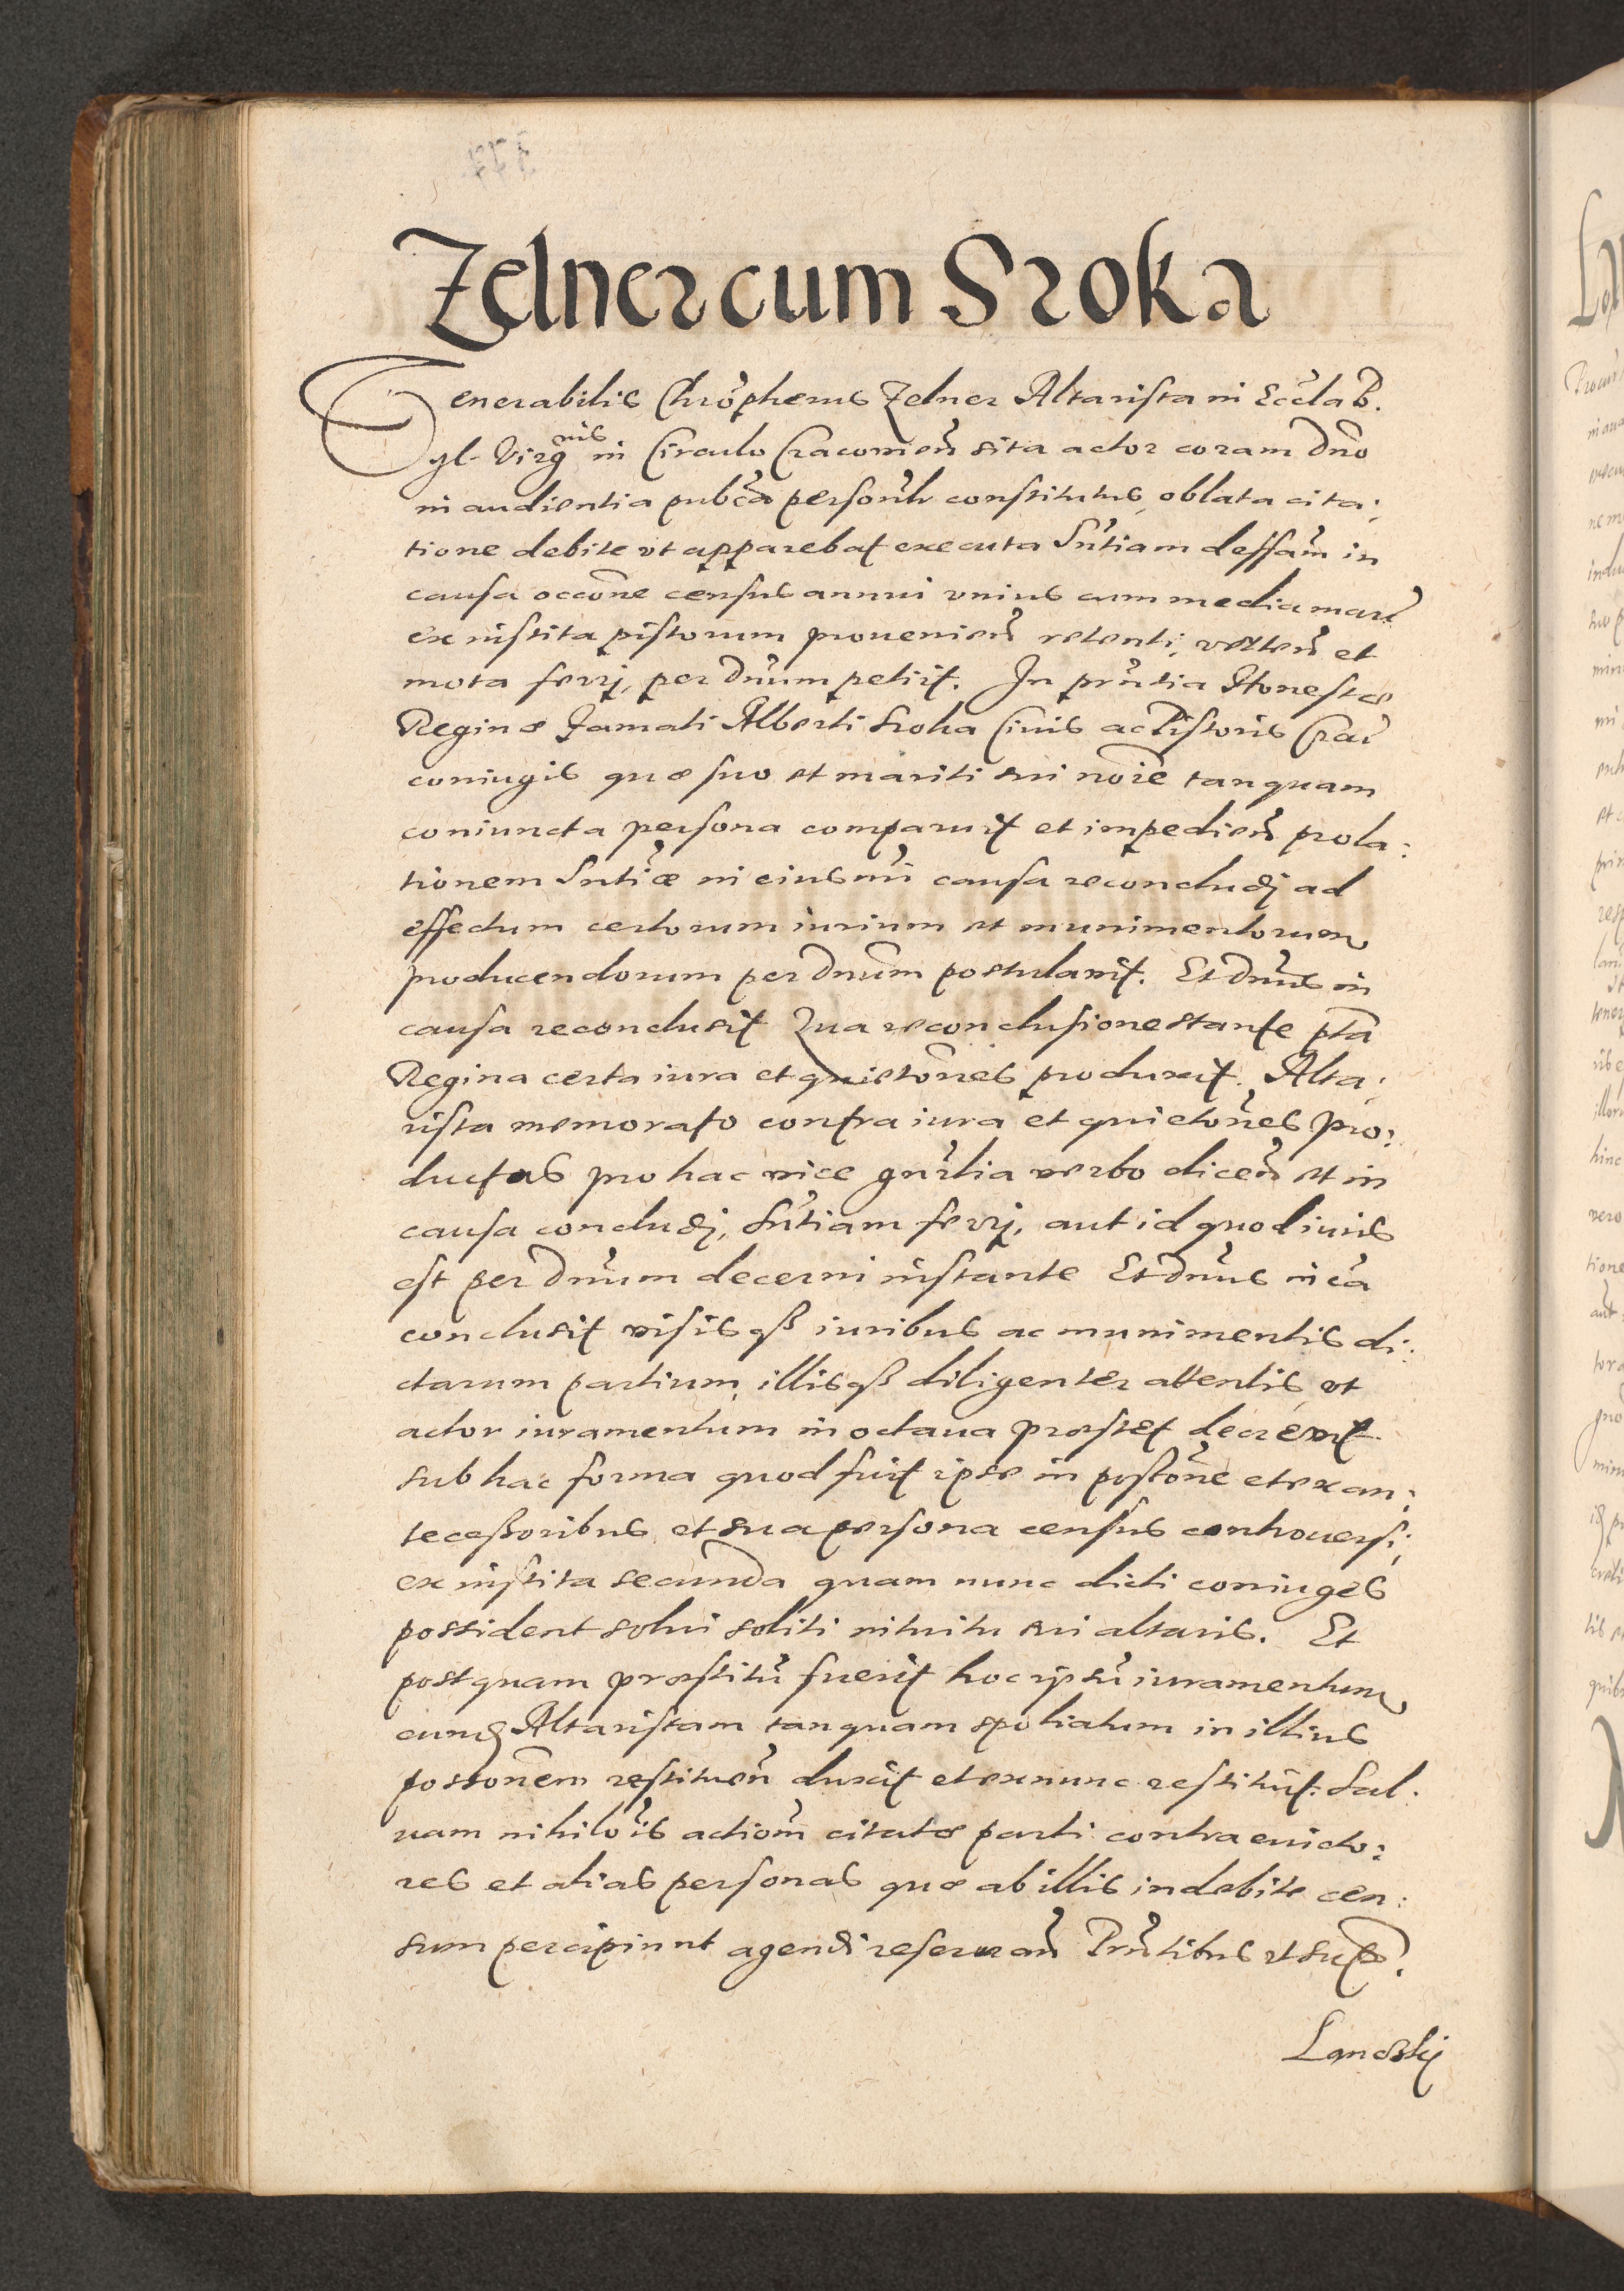 Zelner cum Sroka
Venerabilis Chrõpherus Zelner Altarista in Eccla B.
gl. Virgnis in Circulo Cracouien̄ sita actor coram Dn̄o
in audientia pub͠ca person͠lr constitutus, oblata cita:
tione debite vt apparebat executa Sn̄tiam deffam̄ in
causa occõne census annui vnius cum media mar͠
ex instita pistorum prouenien̄ retenti, et
mota ferrj, per Dn̄um petijt. In prn̄tia Honestæ
Reginæ famati Alberti Sroka Ciuis ac Pistoris Crac͠
coniugis quæ suo et mariti sui nõie tanquam
coniuncta persona comparuit et impedien̄ prola:
tionem Sn̄tiæ in eiusm̄i causa reconcludj ad
effectum certorum iurium et munimentorum
producendorum per Dn̄um postulauit. Et Dn̄us in
causa reconclusit Qua reconclusione stante pta͠
Regina certa iura et quietões produxit. Alta:
rista memorato contra iura et quietões pro:
ductas pro hac vice gn̄rlia verbo dicen̄ et in
causa concludj, Sn̄tiam ferrj, aut id quod iuris
est per Dn̄um decerni instante Et Dn̄us in c͠a
conclusit visisqꝫ iuribus ac munimentis di:
ctarum partium, illisqꝫ diligenter attentis, vt
actor iuramentum in octaua præstet decreuit
sub hac forma quod fuit ipse in possõne et ex an:
tecessoribus, et sua persona census controuersi,
ex instita secunda quam nunc dicti coniuges
possident solui soliti intuitu sui altaris. Et
postquam præstitũ fuerit hoc ipsũ iuramentum
eund Altaristam tanquam spoliatum in illius
possonẽm restituen̄ duxit et ex nunc restituit. Sal:
uam nihilõis actiom̄ citatæ parti contra euicto:
res et alias personas quæ ab illis indebite cen:
sum percipiunt agendi reseruan̄ Prn̄tibus vt supra.